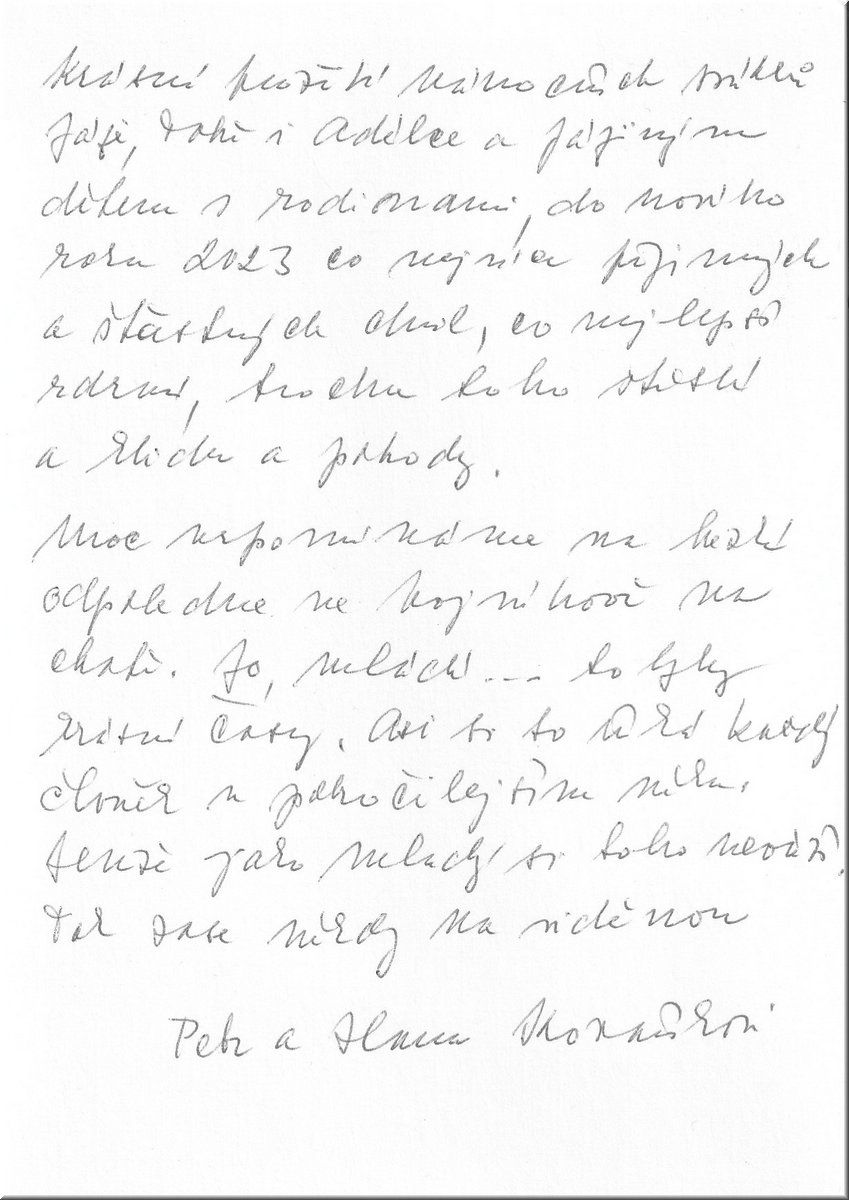 Krásné prožití vánočních svátků
Jáje, Tobě i Adélce a Jájiným
dětem s rodinami, do nového
roku 2023 co nejvíce příjemných
a šťastných chvil, co nejlepší
zdraví, trochu toho štěstí
a klidu a pohody.
Moc vzpomínáme na hezké
odpoledne ve Vojníkově na
chatě. Jo, mládí --- to byly
krásné časy. Asi si to říká každý
člověk v pokročilejším věku.
Jenže jako mladý si toho neváží.
Tak zase někdy na viděnou
Petr a Hana